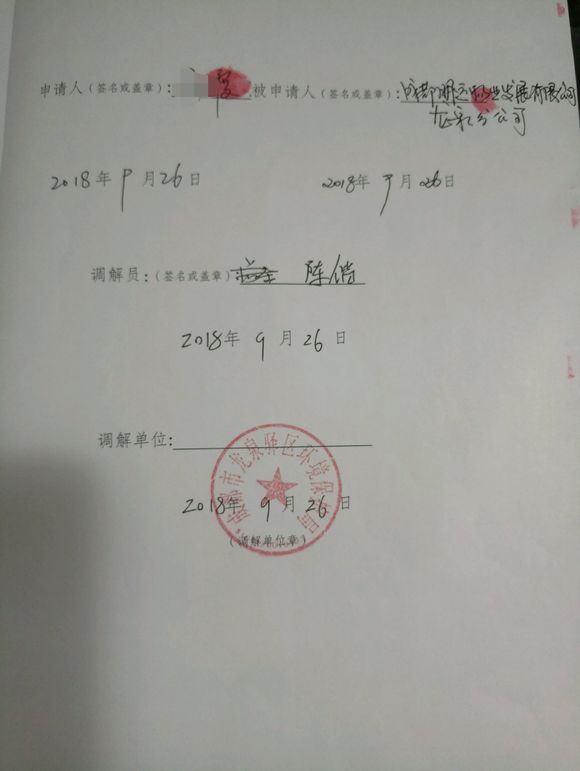 申请人(签名或盖章): 被申请人(签名或盖章):成都 发展有限公司
龙泉分公司
2018年9月26日 2018年9月26日
调解员:(签名或盖章) 陈
2018年9月26日
调解单位:
成都市龙泉驿区环境保护局
2018年9月26日
(调解单位章)